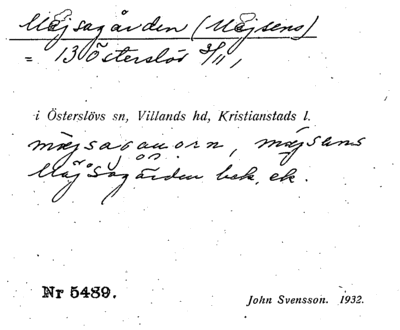 Måjsagården (Måjsens)
= 13 Österslöv 3/11,
i Österslövs sn, Villands hd, Kristianstads l.
måjsagauorn, måjsens
Måjsagården bek. ek.
Nr 5489.
John Svensson. 1932.